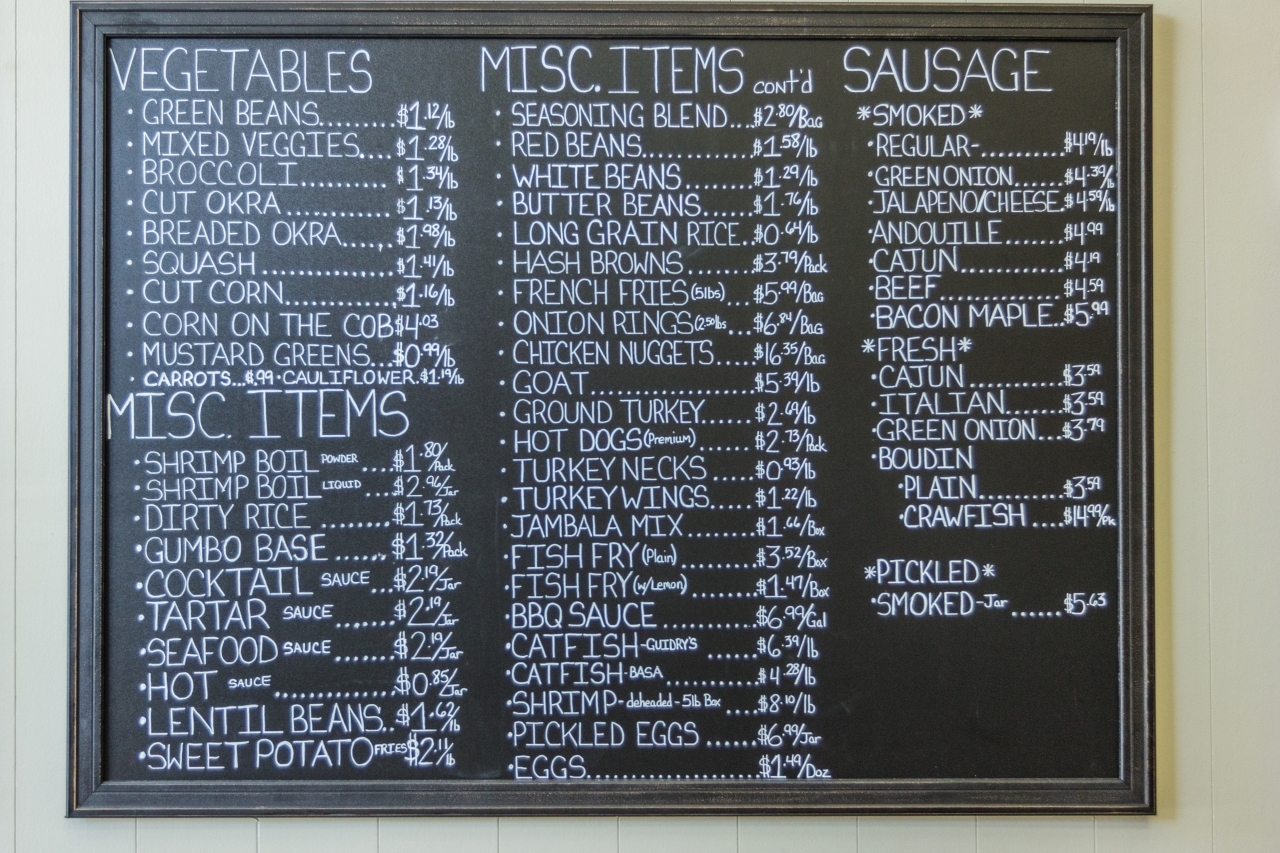 VEGETABLES
· GREEN BEANS.........$1.12/lb
· MIXED VEGGIES....$1.28/lb
· BROCCOLI............$1.34/lb
· CUT OKRA............$1.13/lb
· BREADED OKRA......$1.98/lb
· SQUASH..............$1.41/lb
· CUT CORN............$1.16/lb
· CORN ON THE COB $4.03
· MUSTARD GREENS...$0.99/lb
· CARROTS...$.99 · CAULIFLOWER.$1.19/lb
MISC. ITEMS
· SHRIMP BOIL POWDER ....$1.80/Pack
· SHRIMP BOIL LIQUID ...$2.96/Jar
· DIRTY RICE ........$1.73/Pack
· GUMBO BASE .......$1.32/Pack
· COCKTAIL SAUCE ...$2.19/Jar
· TARTAR SAUCE ......$2.19/Jar
· SEAFOOD SAUCE .......$2.19/Jar
· HOT SAUCE ..............$0.85/Jar
· LENTIL BEANS..$1.62/lb
· SWEET POTATO FRIES $2.11/lb
MISC. ITEMS cont'd
· SEASONING BLEND...$2.80/BaG
· RED BEANS..............$1.58/lb
· WHITE BEANS .........$1.29/lb
· BUTTER BEANS.......$1.76/lb
· LONG GRAIN RICE..$0.64/lb
· HASH BROWNS ........$3.79/Pack
· FRENCH FRIES (5lbs)...$5.99/BaG
· ONION RINGS (2.50lbs...$6.84/BaG
· CHICKEN NUGGETS......$16.35/BaG
· GOAT.....................$5.39/lb
· GROUND TURKEY.......$2.69/lb
· HOT DOGS (Premium) .......$2.73/Pack
· TURKEY NECKS .......$0.93/lb
· TURKEY WINGS.......$1.22/lb
· JAMBALA MIX .........$1.66/Box
· FISH FRY (Plain) .........$3.52/Box
· FISH FRY (w/Lemon) ........$1.47/Box
· BBQ SAUCE ............$6.99/Gal
· CATFISH-GUIDRY'S .......$6.39/lb
· CATFISH-BASA ..........$4.28/lb
· SHRIMP-deheaded-5lb Box ....$8.10/lb
· PICKLED EGGS .......$6.99/Jar
· EGGS......................$1.49/Doz
SAUSAGE
*SMOKED*
· REGULAR-..........$4.19/lb
· GREEN ONION......$4.39/lb
· JALAPENO/CHEESE.$4.59/lb
· ANDOUILLE........$4.99
· CAJUN.............$4.19
· BEEF................$4.59
· BACON MAPLE..$5.99
*FRESH*
· CAJUN ............$3.59
· ITALIAN.........$3.59
· GREEN ONION...$3.79
· BOUDIN
· PLAIN..........$3.59
· CRAWFISH ....$14.99/Pk
*PICKLED*
· SMOKED-Jar ......$5.63